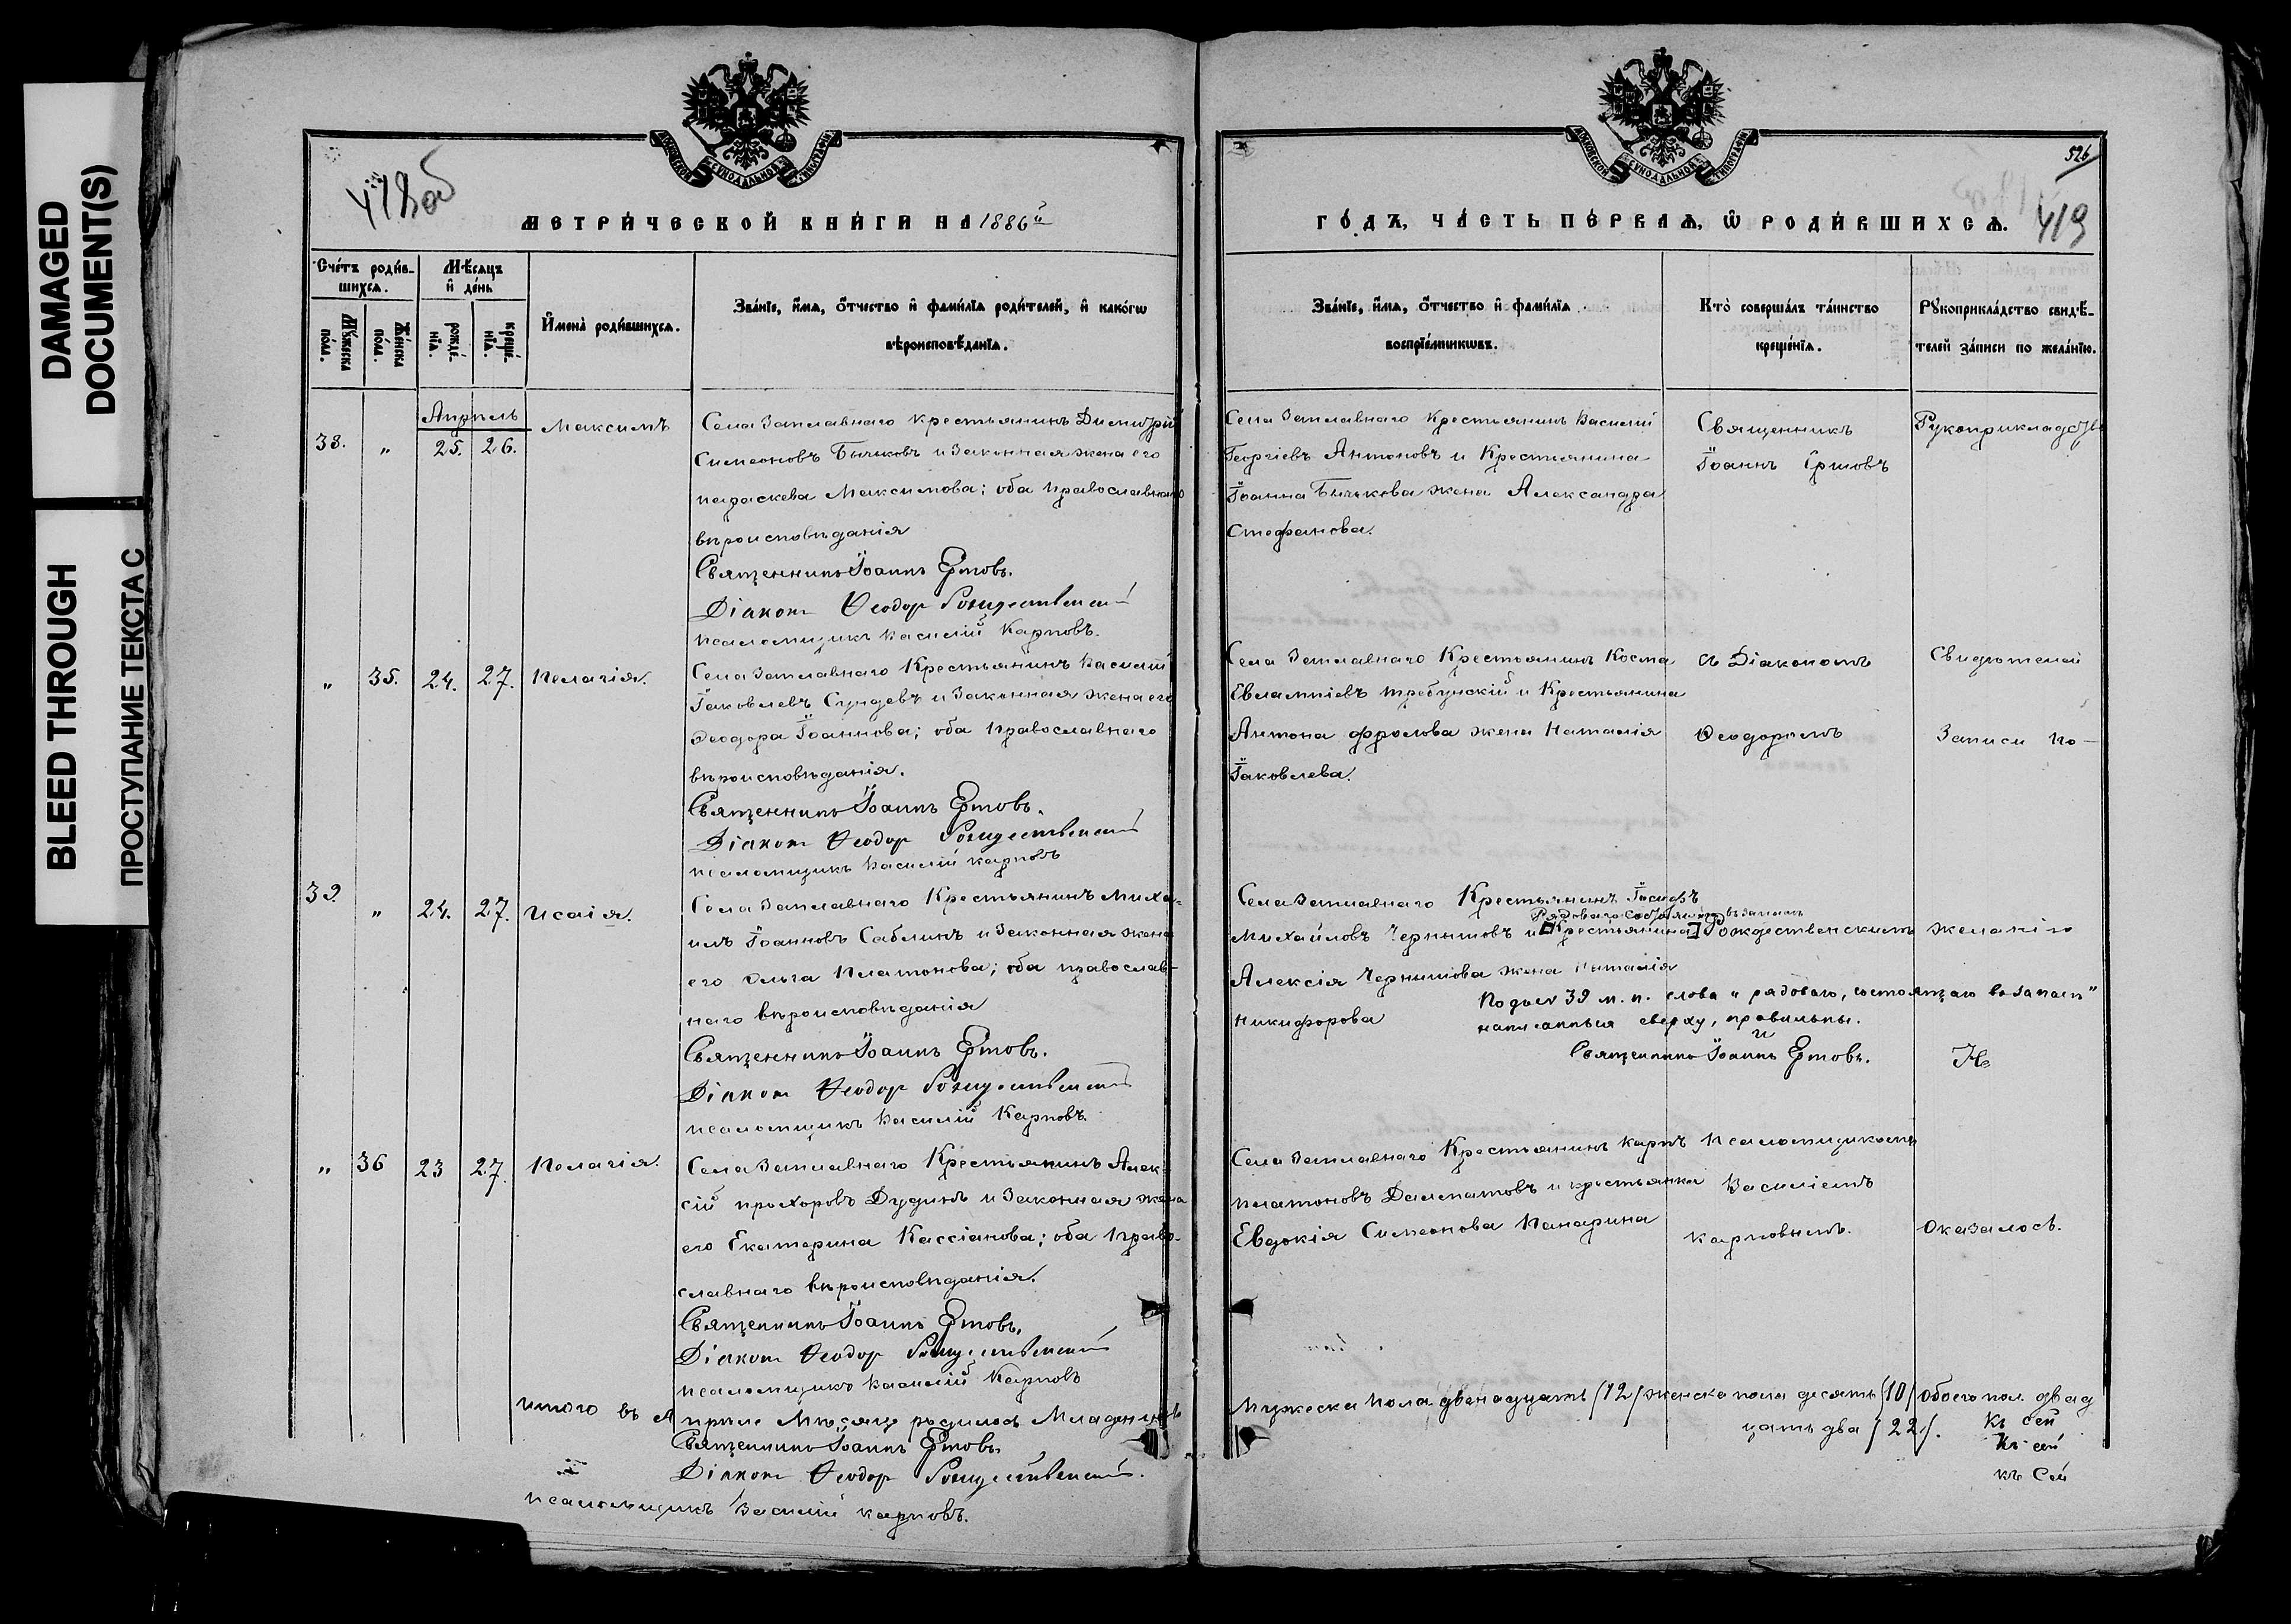 DAMAGED
DOCUMENT(S)
BLEED THROUGH
ПРОСТУПАНИЕ ТЕКСТА С
МОСКОВСКОЙ СѴНОДАЛЬНОЙ ТИПОГРАФІИ
418об
МЕТРИ́ЧЕСКОЙ КНИ́ГИ НА 1886й
Сче́тъ роди́в-
шихсѧ.
Мѣ́сѧцъ
и҆ де́нь
Мꙋ́жеска
по́ла.
Же́нска
по́ла.
рожде́-
нїѧ.
креще́-
нїѧ.
И҆мена̀ роди́вшихсѧ.
Зва́нїе, и҆́мѧ, ѻ҆́тчество и҆ фами́лїѧ роди́телей, и҆ како́гѡ
вѣроисповѣ́данїѧ.
Апрѣль
38. „ 25. 26. Максимъ
Села Заплавнаго крестьянинъ Димитрій
Симеоновъ Бычковъ и законная жена его
Параскева Максимова; оба православнаго
вѣроисповѣданія
Священникъ Іоаннъ Ертовъ.
Діаконъ Ѳеодор Рождественскій
Псаломщикъ Василій Карповъ.
„ 35. 24. 27. Пелагія.
Села Заплавнаго Крестьянинъ Василій
Іаковлевъ Сундевъ и Законная жена его
Ѳеодора Іоаннова; оба православнаго
вѣроисповѣданія.
Священникъ Іоаннъ Ертовъ.
Діаконъ Ѳеодор Рождественскій
Псаломщикъ Василій Карповъ
39. „ 24. 27. Исаія.
Села Заплавнаго Крестьянинъ Миха-
илъ Іоанновъ Саблинъ и Законная жена
его Ольга Платонова; оба православ-
наго вѣроисповѣданія
Священникъ Іоаннъ Ертовъ.
Діаконъ Ѳеодор Рождественскій
Псаломщикъ Василій Карповъ.
„ 36 23 27. Пелагія.
Села Заплавнаго Крестьянинъ Алек-
сій Прохоровъ Дудинъ и Законная жена
его Екатерина Кассіанова; оба право-
славнаго вѣроисповѣданія.
Священникъ Іоаннъ Ертовъ.
Діаконъ Ѳеодор Рождественскій
Псаломщикъ Василій Карповъ
Итого въ Апрѣле Мѣсяце родилось Младенцевъ
Священникъ Іоаннъ Ертовъ
Діаконъ Ѳеодор Рождественскій.
Псаломщикъ Василій Карповъ.
МОСКОВСКОЙ СѴНОДАЛЬНОЙ ТИПОГРАФІИ
526
419
ГО́ДЪ, ЧА́СТЬ ПЕ́РВАѦ, Ѽ РОДИ́ВШИХСѦ.
Зва́нїе, и҆́мѧ, ѻ҆́тчество и҆ фами́лїѧ
воспрїе́мникѡвъ.
Кто̀ соверша́лъ та́инство
креще́нїѧ.
Рꙋкоприкла́дство свидѣ́-
телей за́писи по жела́нїю.
Села Заплавнаго Крестьянинъ Василій
Георгіевъ Антоновъ и Крестьянина
Іоанна Бычкова жена Александра
Стефанова.
Священникъ
Іоаннъ Ертовъ
Рукоприкладств
Села Заплавнаго Крестьянинъ Косма
Евлампіевъ Требунскій и Крестьянина
Антона Фролова жена Наталія
Іаковлева.
съ Діакономъ
Ѳеодоромъ
Свидѣтелей
Записи по-
Села Заплавнаго Крестьянинъ Іосифъ
Рядоваго состоящаго въ запасѣ
Михайловъ Чернышовъ и Крестьянина
Рождественскимъ
желанію
Алексія Чернышова жена Наталія
Никифорова
Подъ № 39 м. п. слова „рядоваго, состоящаго въ запасѣ"
написанныя сверху, правильны.
Священникъ Іоаннъ Ертовъ.
Не
Села Заплавнаго Крестьянинъ Карпъ
Платоновъ Далматовъ и крестьянка
Евдокія Симеонова Панарина
Псаломщикомъ
Василіемъ
Карповымъ.
Оказалось.
Мужеска пола двенадцать /12/ женска пола десять /10/ обоего пол. двад
цать два /22/.
Къ сей
Къ сей
къ Сей